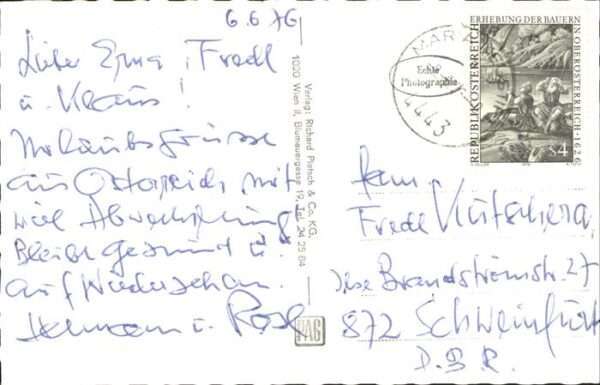 6.6.76
Liebe Erna, Fredl
u. Klaus!
Urlaubsgrüsse
aus Österreich mit
viel Abwechslung
Bleibt gesund u.
auf Wiedersehen.
Hermann u. Rosl
Verlag: Richard Pietsch & Co. KG.
1020 Wien II, Blumauergasse 19, Tel. 24 25 84
PAG
MAR
4443
Echte
Photographie
ERHEBUNG DER BAUERN
IN OBERÖSTERREICH · 1626
REPUBLIK ÖSTERREICH
S4
Fam.
Fredl Kutschera
Brandströmstr. 27
872 Schweinfurt
D.B.R.